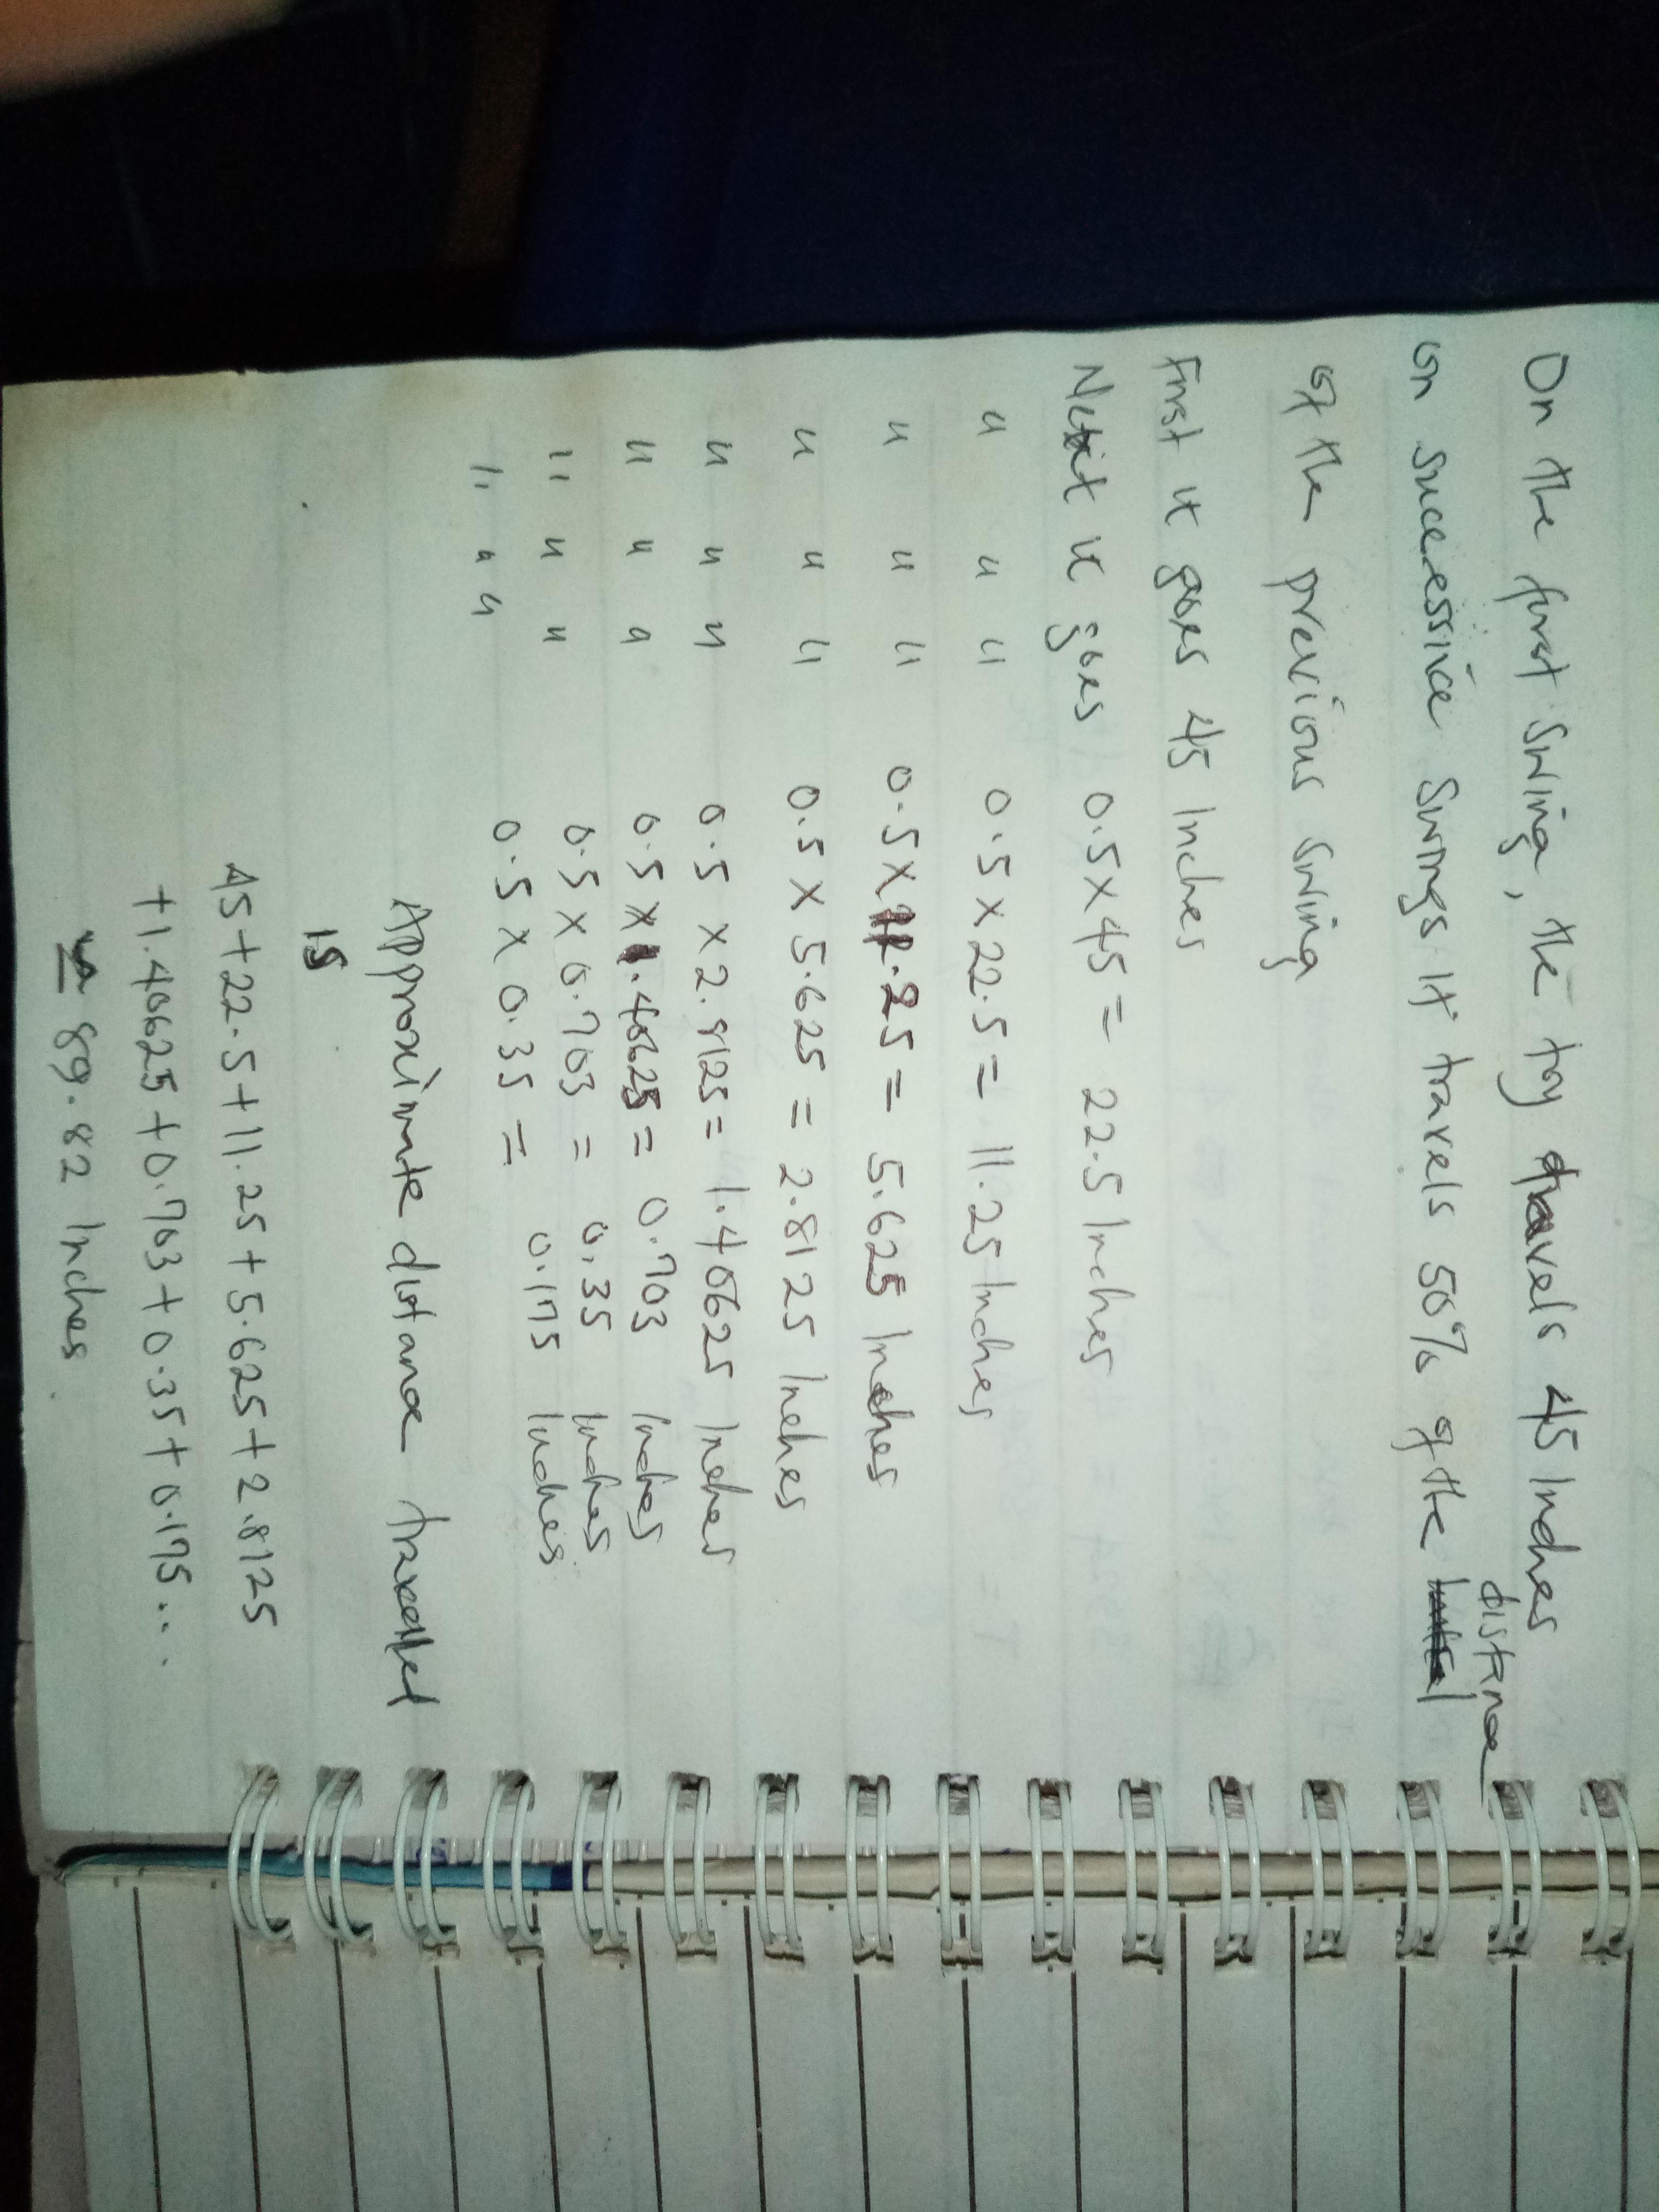 On the first swing, the toy travels 45 Inches
distance
on successive swings it travels 50% of the
of the previous swing
First it goes 45 Inches
Next it goes 0.5 × 45 = 22.5 Inches
" " " 0.5 × 22.5 = 11.25 Inches
" " " 0.5 × 11.25 = 5.625 Inches
" " " 0.5 × 5.625 = 2.8125 Inches
" " " 0.5 × 2.8125 = 1.40625 Inches
" " " 0.5 × 1.40625 = 0.703 Inches
" " " 0.5 × 0.703 = 0.35 Inches
" " " 0.5 × 0.35 = 0.175 Inches
Approximate distance travelled
is
45 + 22.5 + 11.25 + 5.625 + 2.8125
+ 1.40625 + 0.703 + 0.35 + 0.175 . . .
89.82 Inches